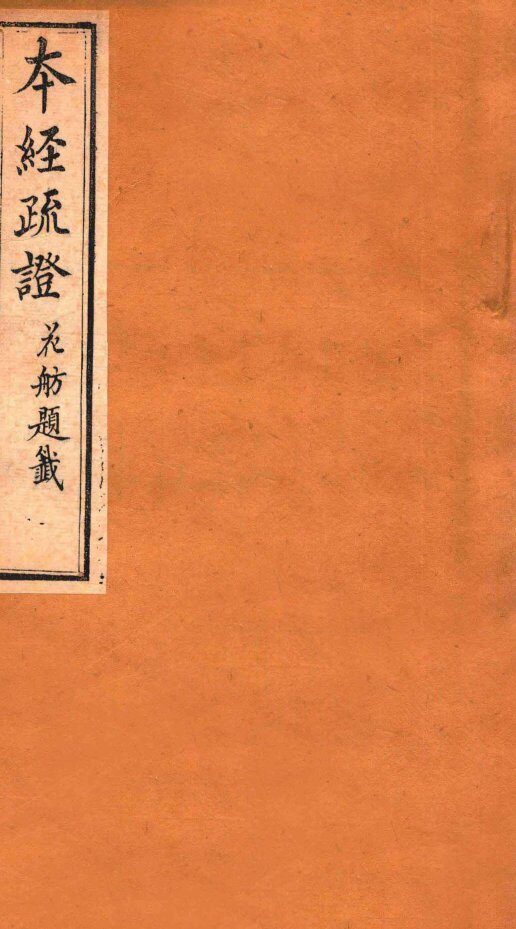 本經疏證
花舫題籤